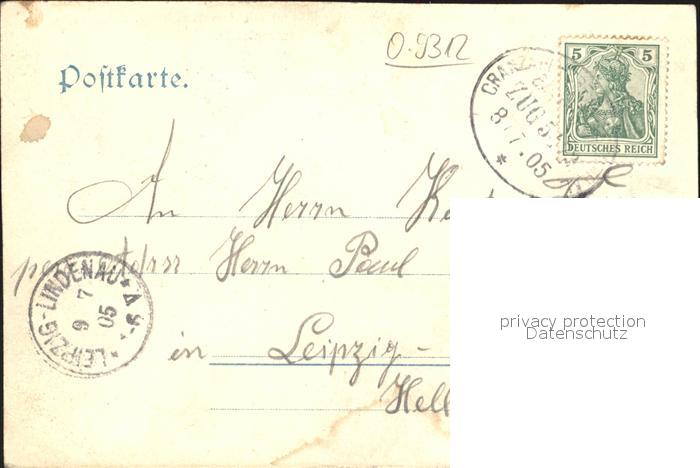 O-9312
Postkarte.
5 5
DEUTSCHES REICH
ZUG 5
8/7.05
An Herrn
per Adrss Herrn Paul
LEIPZIG-LINDENAU
9 7 05
in Leipzig-
privacy protection
Datenschutz